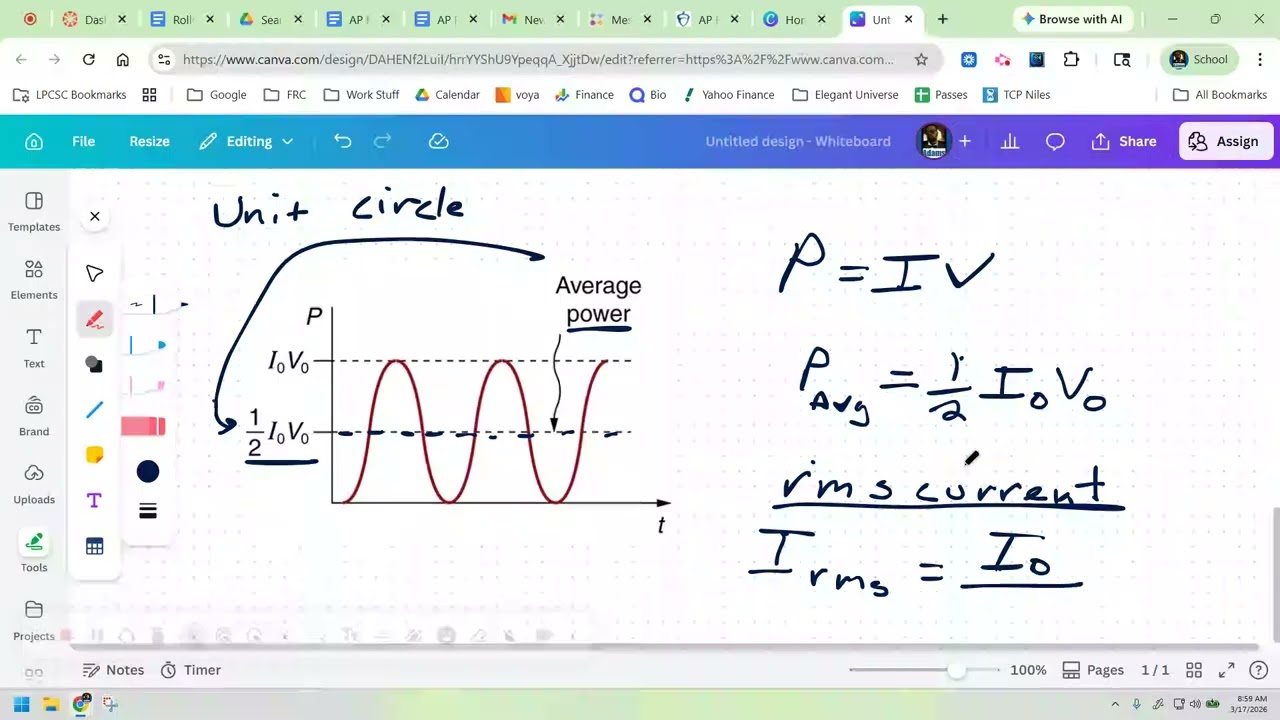 Dasl
Roll
Sear
AP I
AP I
New
Mes
AP I
Hor
Unt
Browse with AI
https://www.canva.com/design/DAHENf2LuiI/hrrYYShU9YpeqqA_XjjtDw/edit?referrer=https%3A%2F%2Fwww.canva.com...
School
LPCSC Bookmarks
Google
FRC
Work Stuff
Calendar
voya
Finance
Bio
Yahoo Finance
Elegant Universe
Passes
TCP Niles
All Bookmarks
File
Resize
Editing
Untitled design - Whiteboard
Share
Assign
Templates
Elements
Text
Brand
Uploads
Tools
Projects
Unit circle
Average
power
P
I₀V₀
1/2 I₀V₀
t
P = IV
P Avg = 1/2 I₀V₀
rms current
I rms = I₀
Notes
Timer
100%
Pages
1 / 1
8:59 AM
3/17/2026